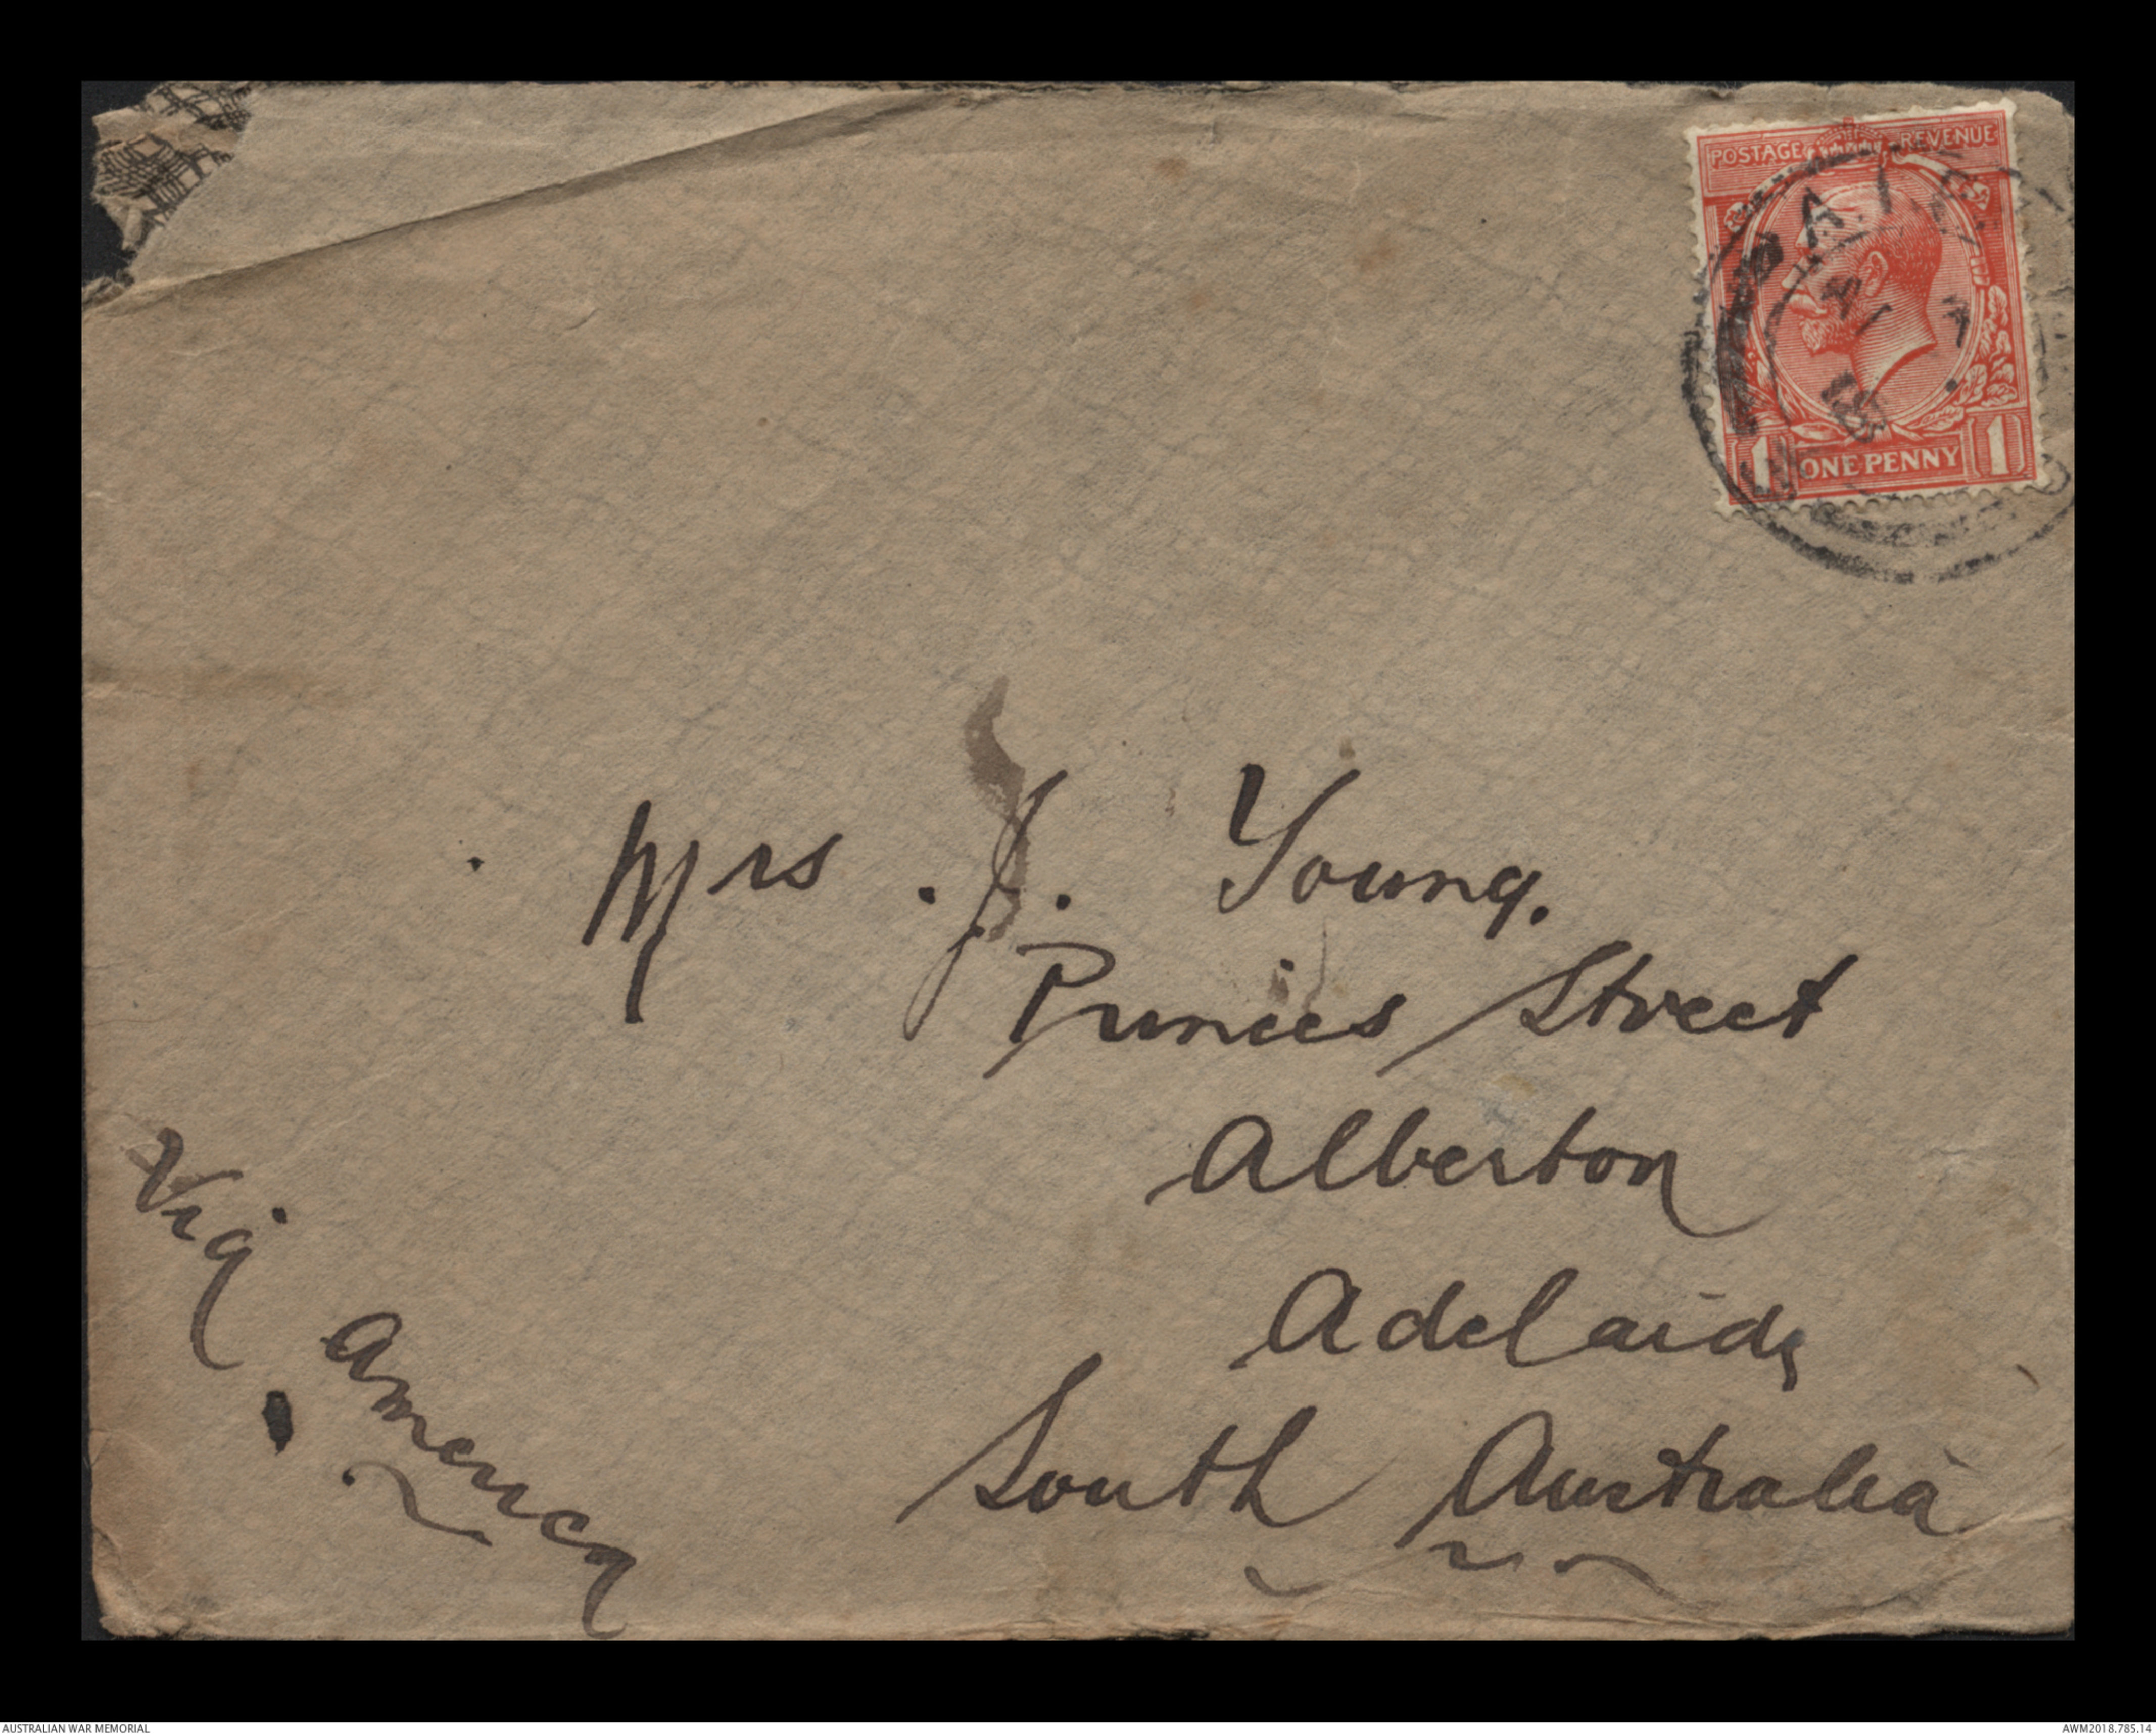 POSTAGE REVENUE
1 ONE PENNY 1
Mrs. J. Young.
Princes Street
Alberton
Adelaide
South Australia
Via America
AUSTRALIAN WAR MEMORIAL
AWM2018.785.14